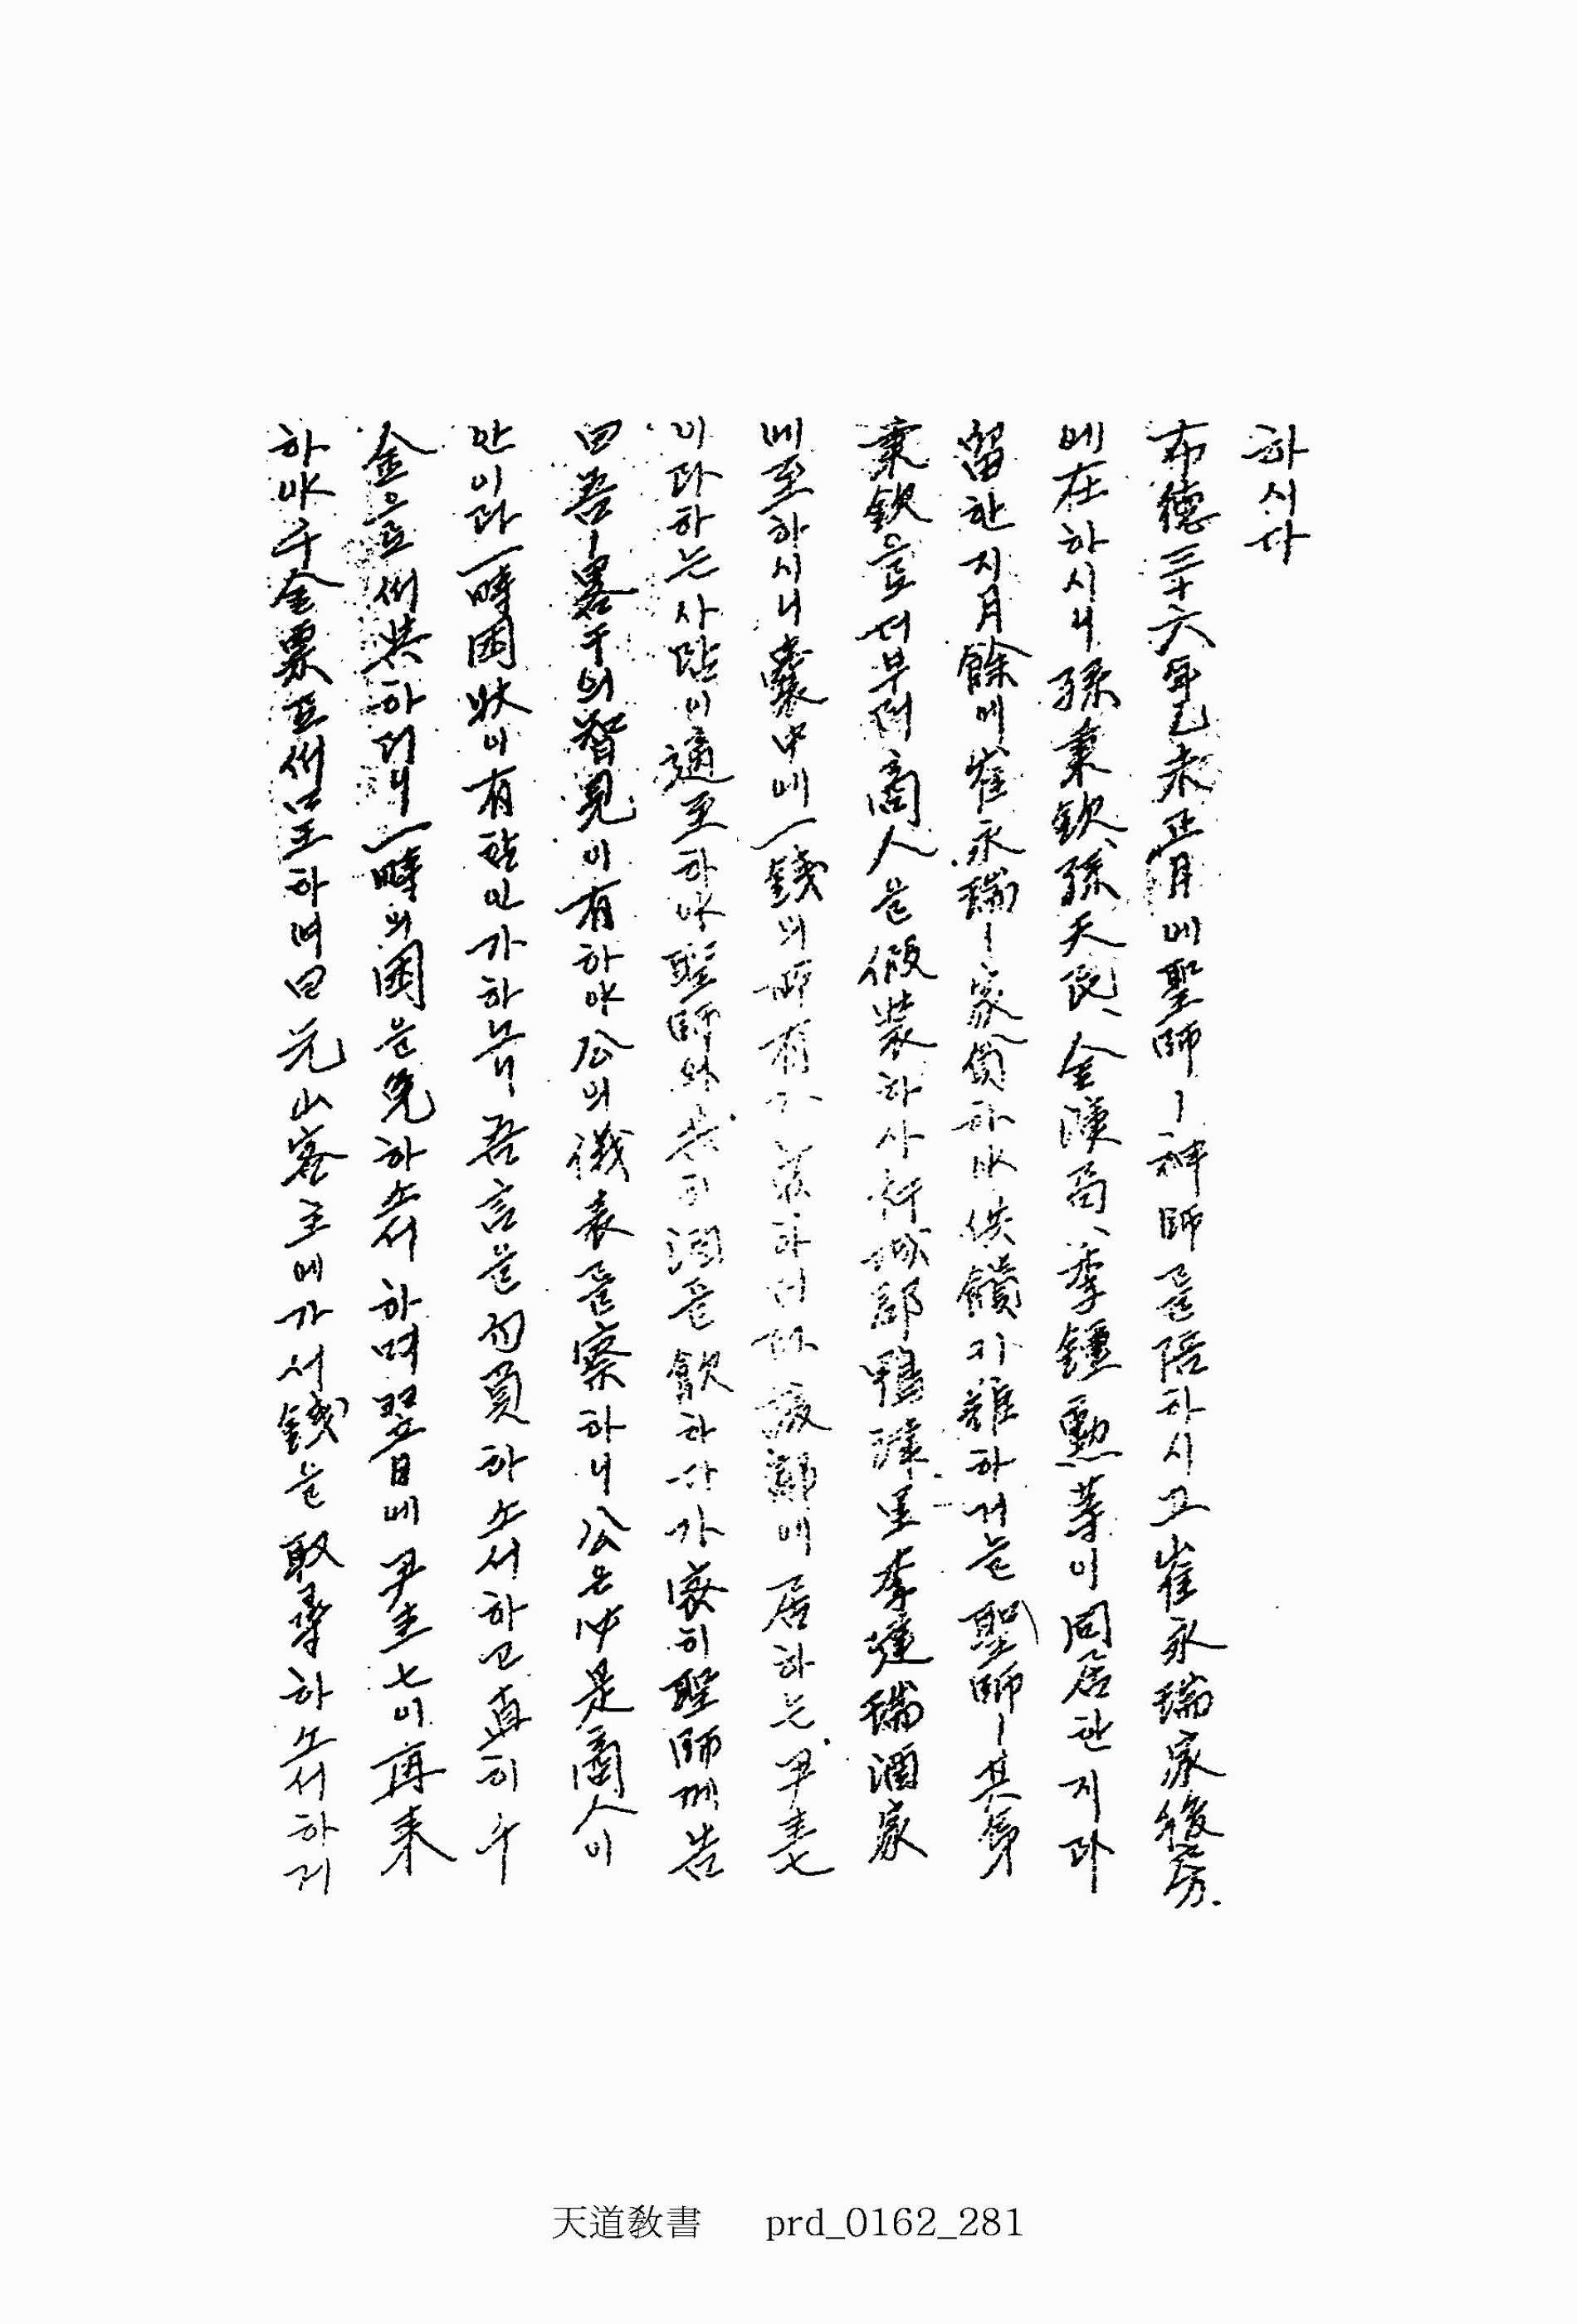 하시다
布德三十六年乙未正月에聖師ㅣ神師를陪하시고崔永瑞家後房
에在하시니孫秉欽、孫天民、金演局、李鍾勳等이同居한지라
留한지月餘에崔永瑞ㅣ家貧하야供饋가難하거늘聖師ㅣ其弟
秉欽으로더부러商人을假裝하사行하야 郡鴨 里李建瑞酒家
에至하시니囊中에一錢의所有가 하더라該鄰에居하는尹圭七
이라하는사람이適至하야聖師와共히酒를飮하다가 히聖師께告
曰吾ㅣ畧干의智見이有하야公의儀表를察하니公은必是商人이
안이라一時困狀이有함인가하노니吾言을勿負하소서하고直히千
金으로써共하리니一時의困을免하소서하며翌日에尹圭七이再來
하야千金票로써呈하며曰元山客主에가서錢을取 하소서하거
天道敎書 prd_0162_281